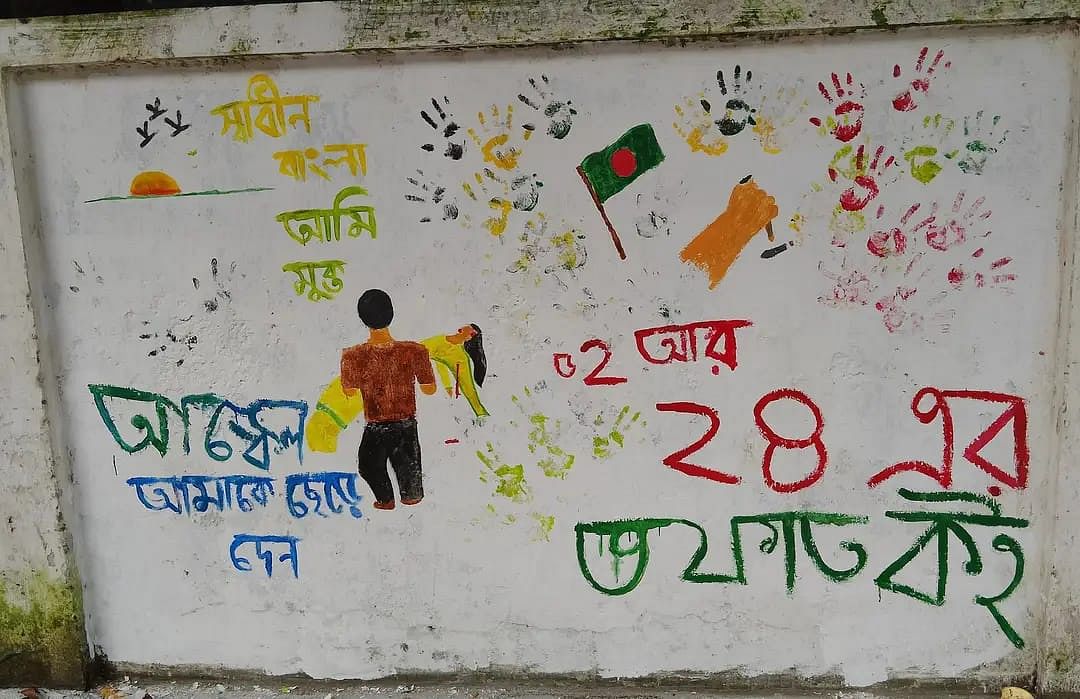 স্বাধীন
বাংলা
আমি
মুক্ত
আঙ্কেল
আমাকে ছেড়ে
দেন
৫২ আর
২৪ এর
তফাত কই